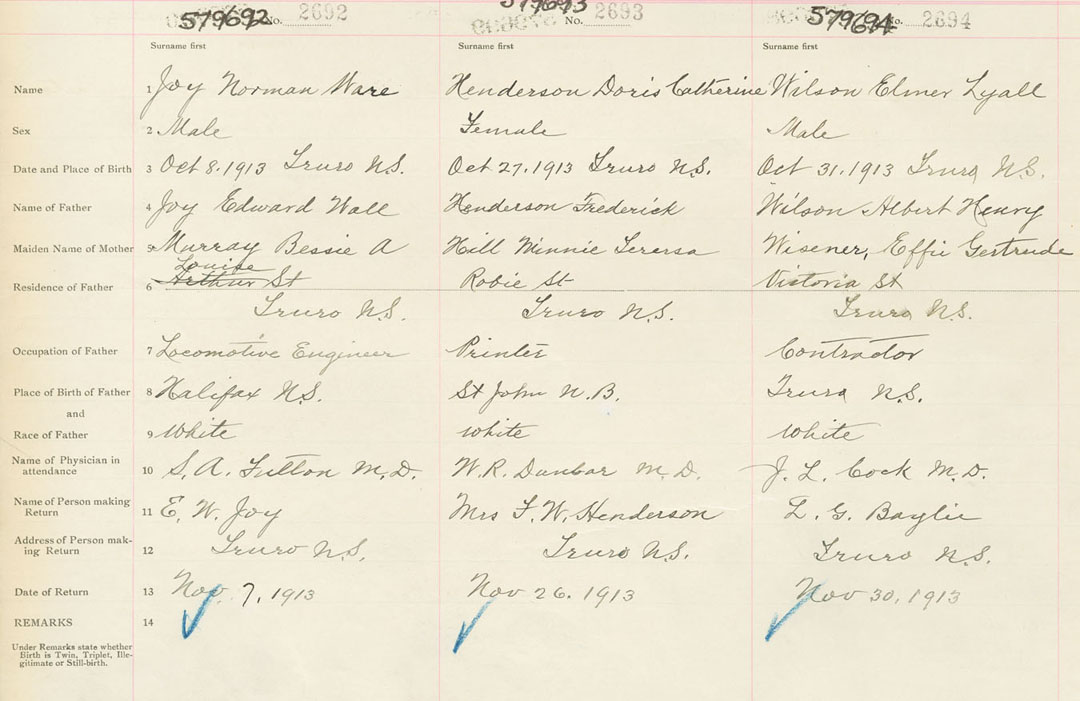 579692 No. 2692 579693 No. 2693 579694 No. 2694
Surname first Surname first Surname first
Name 1 Joy Norman Ware Henderson Doris Catherine Wilson Elmer Lyall
Sex 2 Male Female Male
Date and Place of Birth 3 Oct 8. 1913 Truro N.S. Oct 27. 1913 Truro N.S. Oct 31. 1913 Truro N.S.
Name of Father 4 Joy Edward Wall Henderson Frederick Wilson Albert Henry
Maiden Name of Mother 5 Murray Bessie A Hill Minnie Terersa Wisener, Effie Gertrude
Louise
Residence of Father 6 Arthur St Robie St Victoria St
Truro N.S. Truro N.S. Truro N.S.
Occupation of Father 7 Locomotive Engineer Printer Contractor
Place of Birth of Father 8 Halifax N.S. St John N.B. Truro N.S.
and
Race of Father 9 White White White
Name of Physician in
attendance 10 S. A. Fulton M.D. W. R. Dunbar M.D. J. L. Cock M.D.
Name of Person making
Return 11 E. W. Joy Mrs F. W. Henderson L. G. Baylie
Address of Person mak-
ing Return 12 Truro N.S. Truro N.S. Truro N.S.
Date of Return 13 Nov. 7, 1913 Nov 26. 1913 Nov 30, 1913
REMARKS 14
Under Remarks state whether
Birth is Twin, Triplet, Ille-
gitimate or Still-birth.